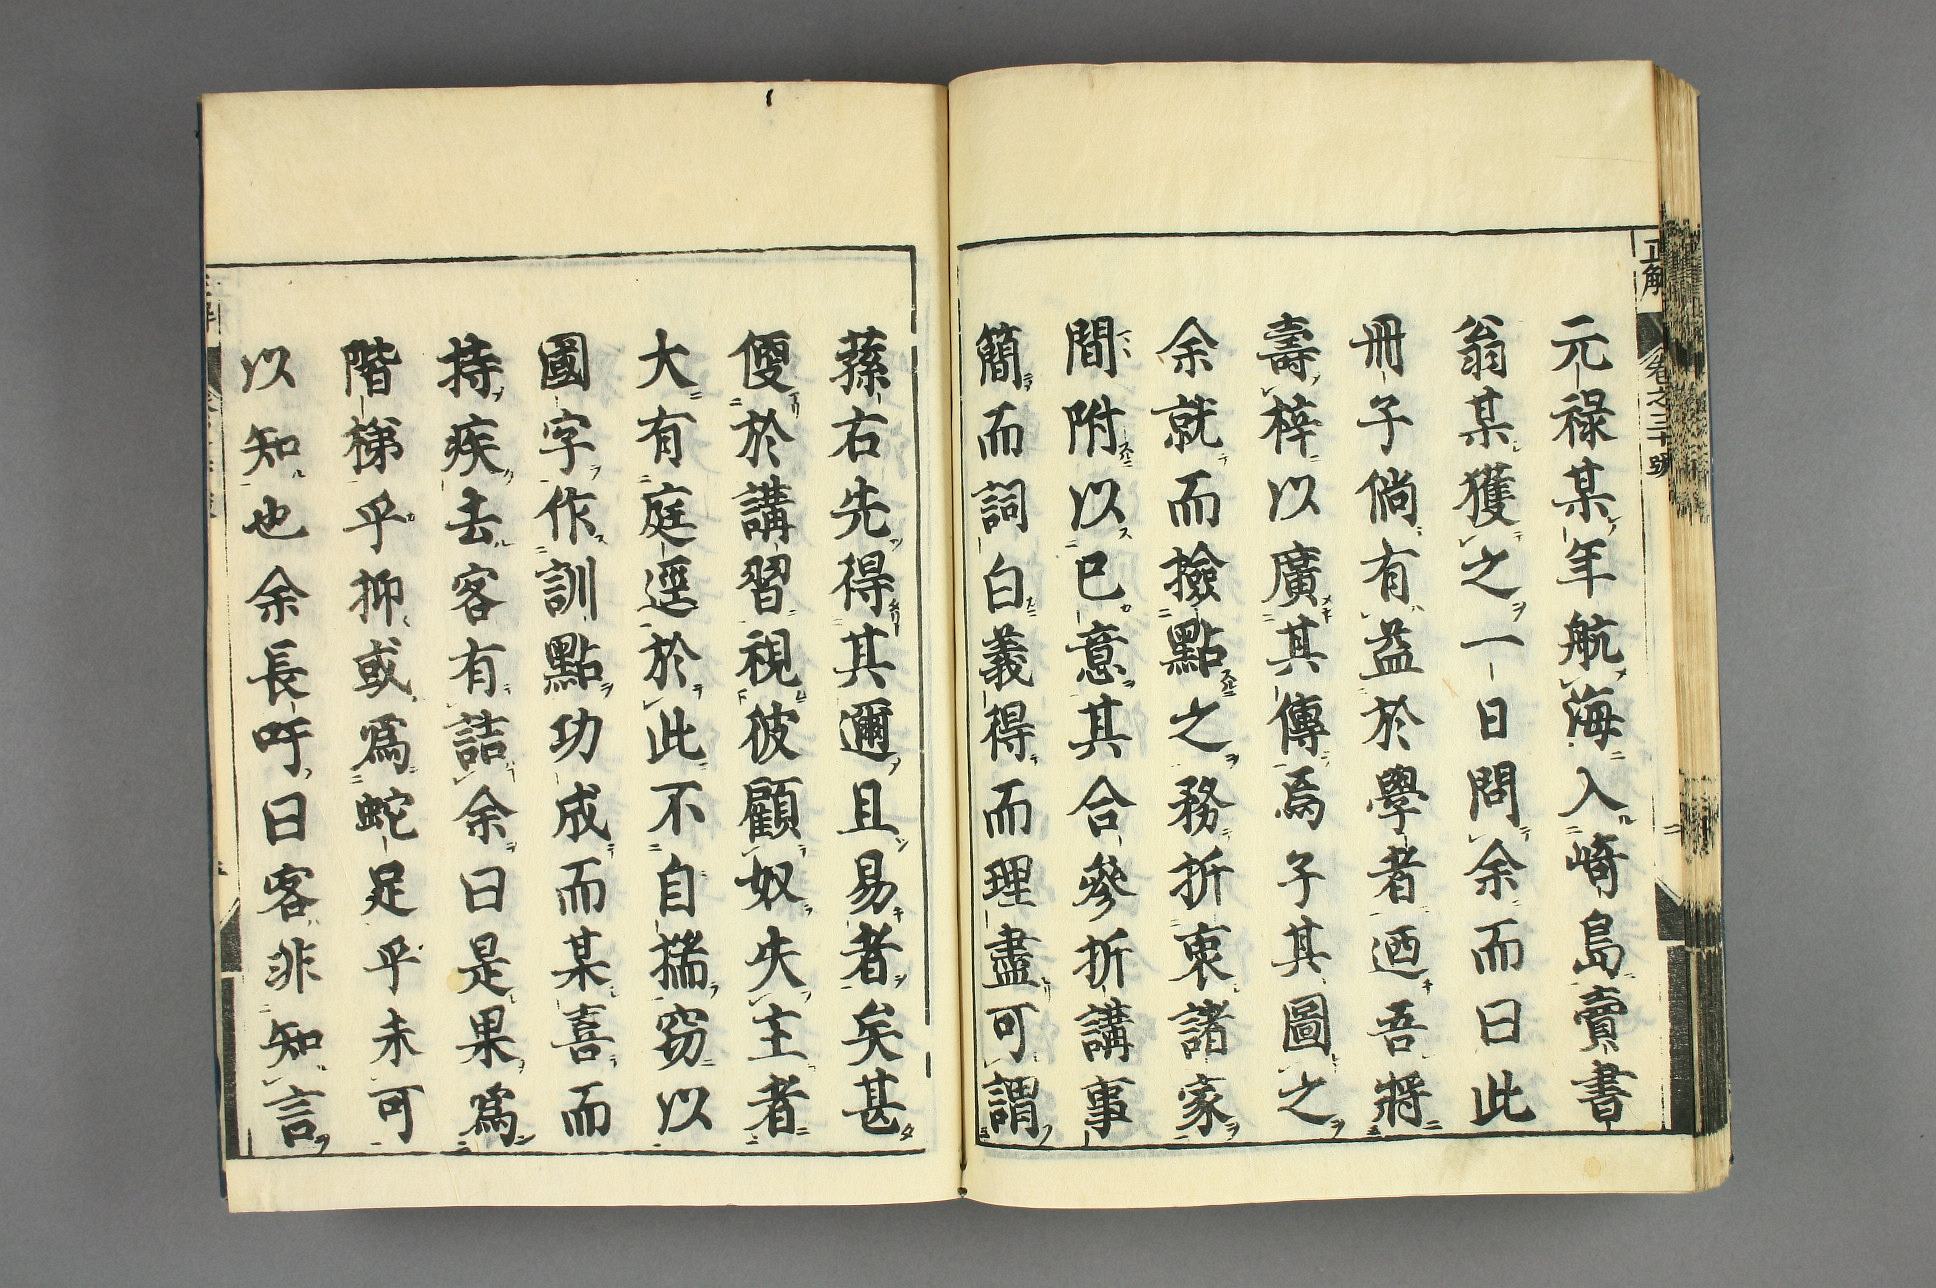 元禄某年航海入崎島賣書
翁某獲之一日問余而曰此
冊子倘有益於學者迺吾將
壽梓以廣其傳焉子其圖之
余就而撿點之務折衷諸家
間附以已意其合參折講事
簡而詞白義得而理盡可謂
蓀右先得其邇且易者矣甚
便於講習視彼顧奴失主者
大有庭逕於此不自揣窃以
國字作訓點功成而某喜而
持疾去客有詰余曰是果爲
階梯乎抑或爲蛇足乎未可
以知也余長吁曰客非知言
正解
卷之三十